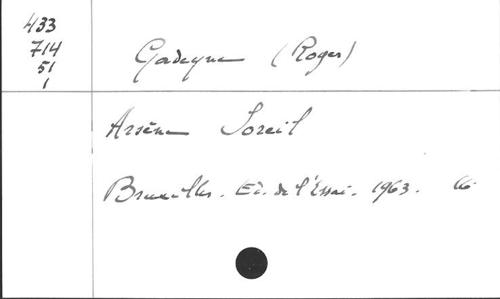 433
714
51
1
Gadeyne (Roger)
Arsène Soreil
Bruxelles. Ed. de l'Essai. 1963. 66